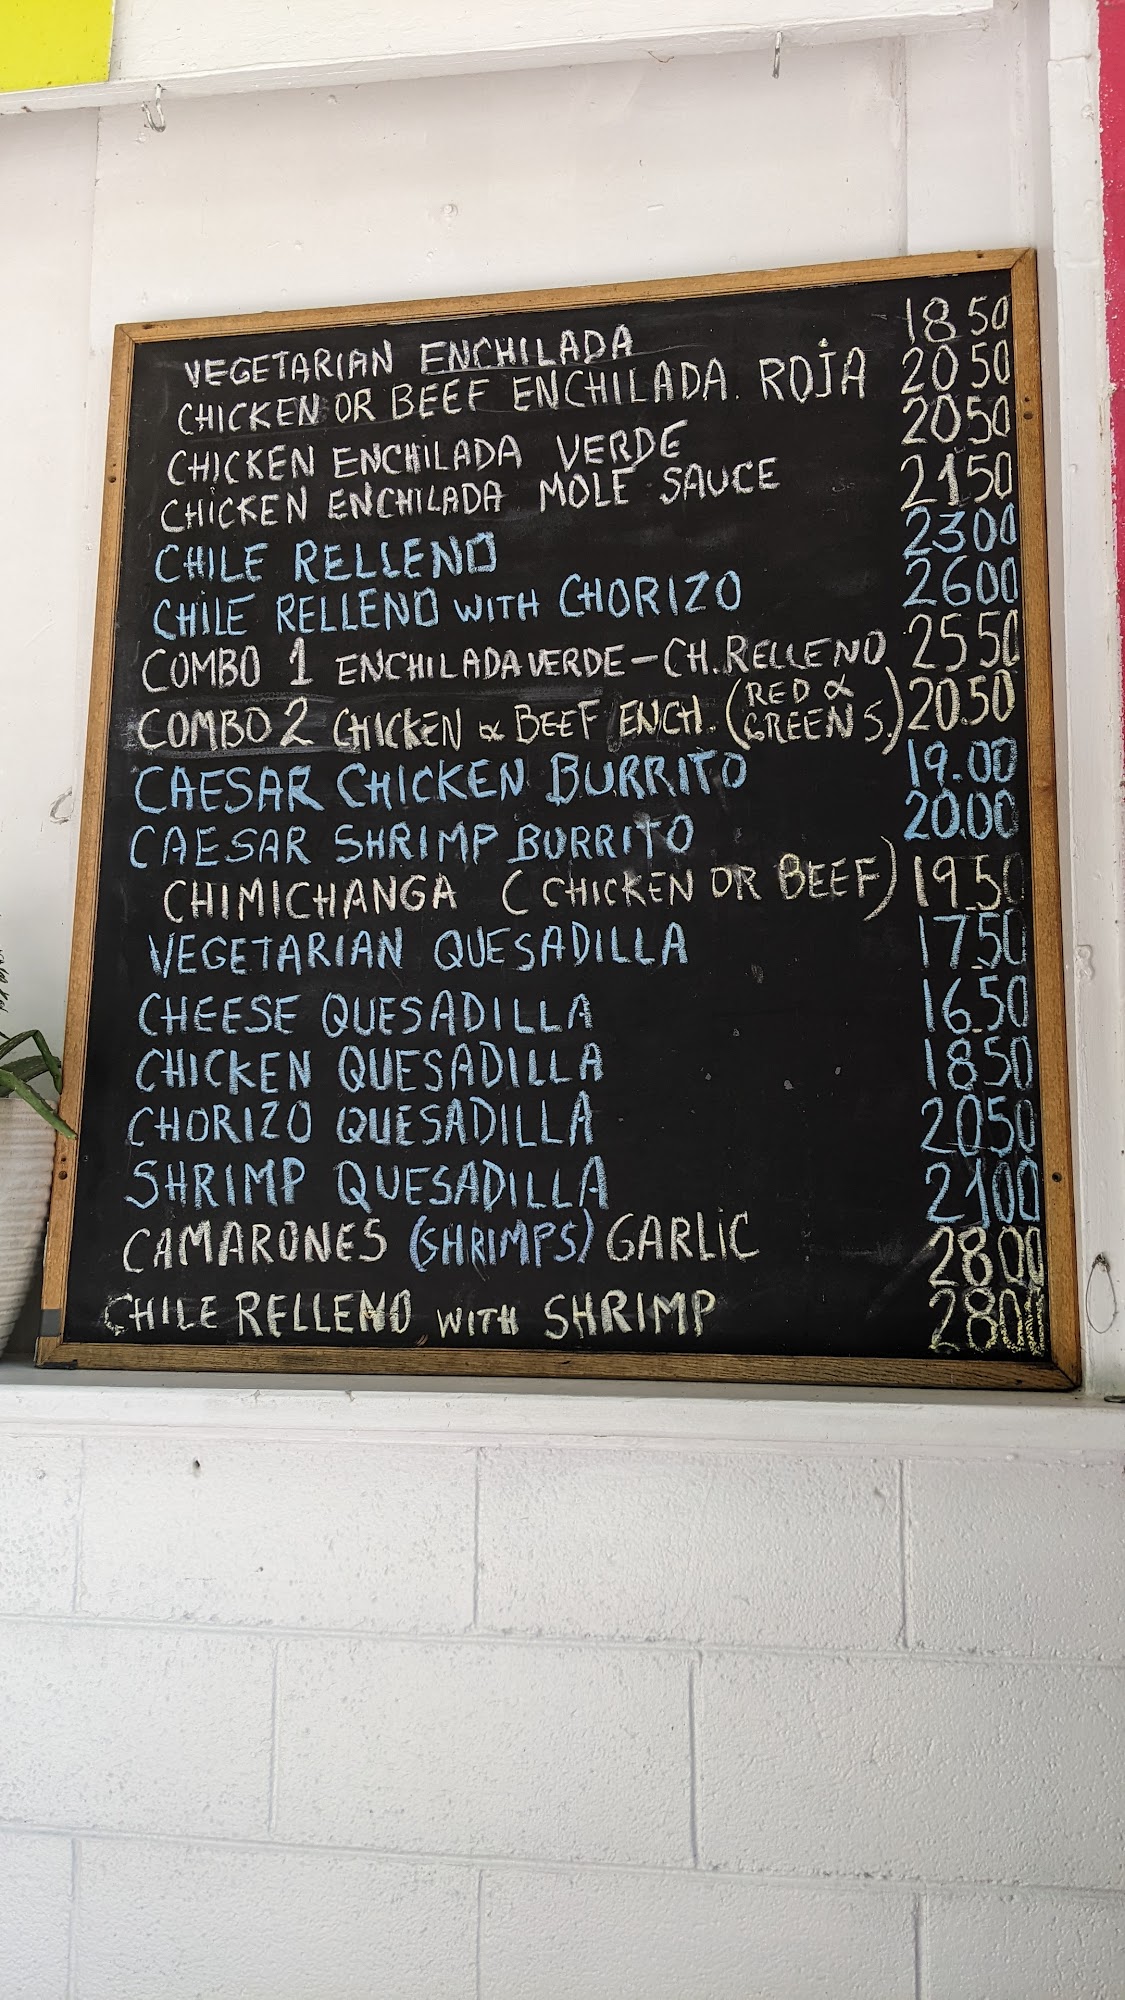 VEGETARIAN ENCHILADA 18 50
CHICKEN OR BEEF ENCHILADA. ROJA 20 50
CHICKEN ENCHILADA VERDE 20 50
CHICKEN ENCHILADA MOLE SAUCE 21 50
CHILE RELLENO 23 00
CHILE RELLENO WITH CHORIZO 26 00
COMBO 1 ENCHILADA VERDE - CH. RELLENO 25 50
COMBO 2 CHICKEN & BEEF ENCH. (RED & GREEN S.) 20.50
CAESAR CHICKEN BURRITO 19.00
CAESAR SHRIMP BURRITO 20.00
CHIMICHANGA (CHICKEN OR BEEF) 19.50
VEGETARIAN QUESADILLA 17.50
CHEESE QUESADILLA 16.50
CHICKEN QUESADILLA 18 50
CHORIZO QUESADILLA 20 50
SHRIMP QUESADILLA 21 00
CAMARONES (SHRIMPS) GARLIC 28 00
CHILE RELLENO WITH SHRIMP 28 00